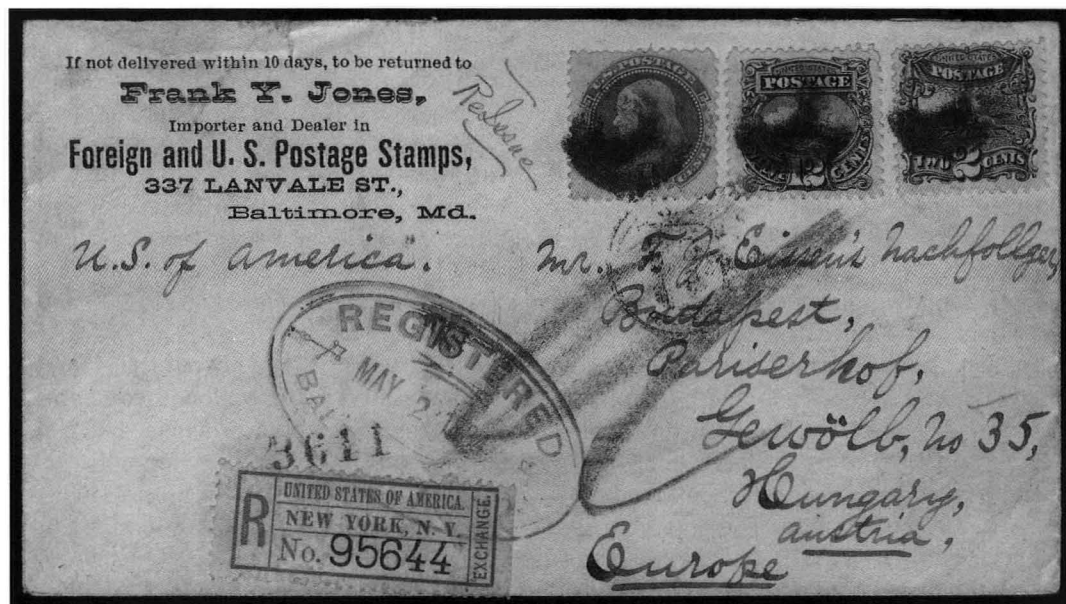 If not delivered within 10 days, to be returned to
Frank Y. Jones,
Importer and Dealer in
Foreign and U. S. Postage Stamps,
337 LANVALE ST.,
Baltimore, Md.
ReIssue
U.S. POSTAGE
POSTAGE
12
CENTS
UNITED STATES
POSTAGE
TWO 2 CENTS
U.S. of America.
Mr. F. J. Nachfollger,
Budapest,
Pariserhof,
Gewölb, No 35,
Hungary,
Austria,
Europe
REGISTERED
MAY 2
BAL
3611
R
UNITED STATES OF AMERICA.
NEW YORK, N.Y.
No. 95644
EXCHANGE